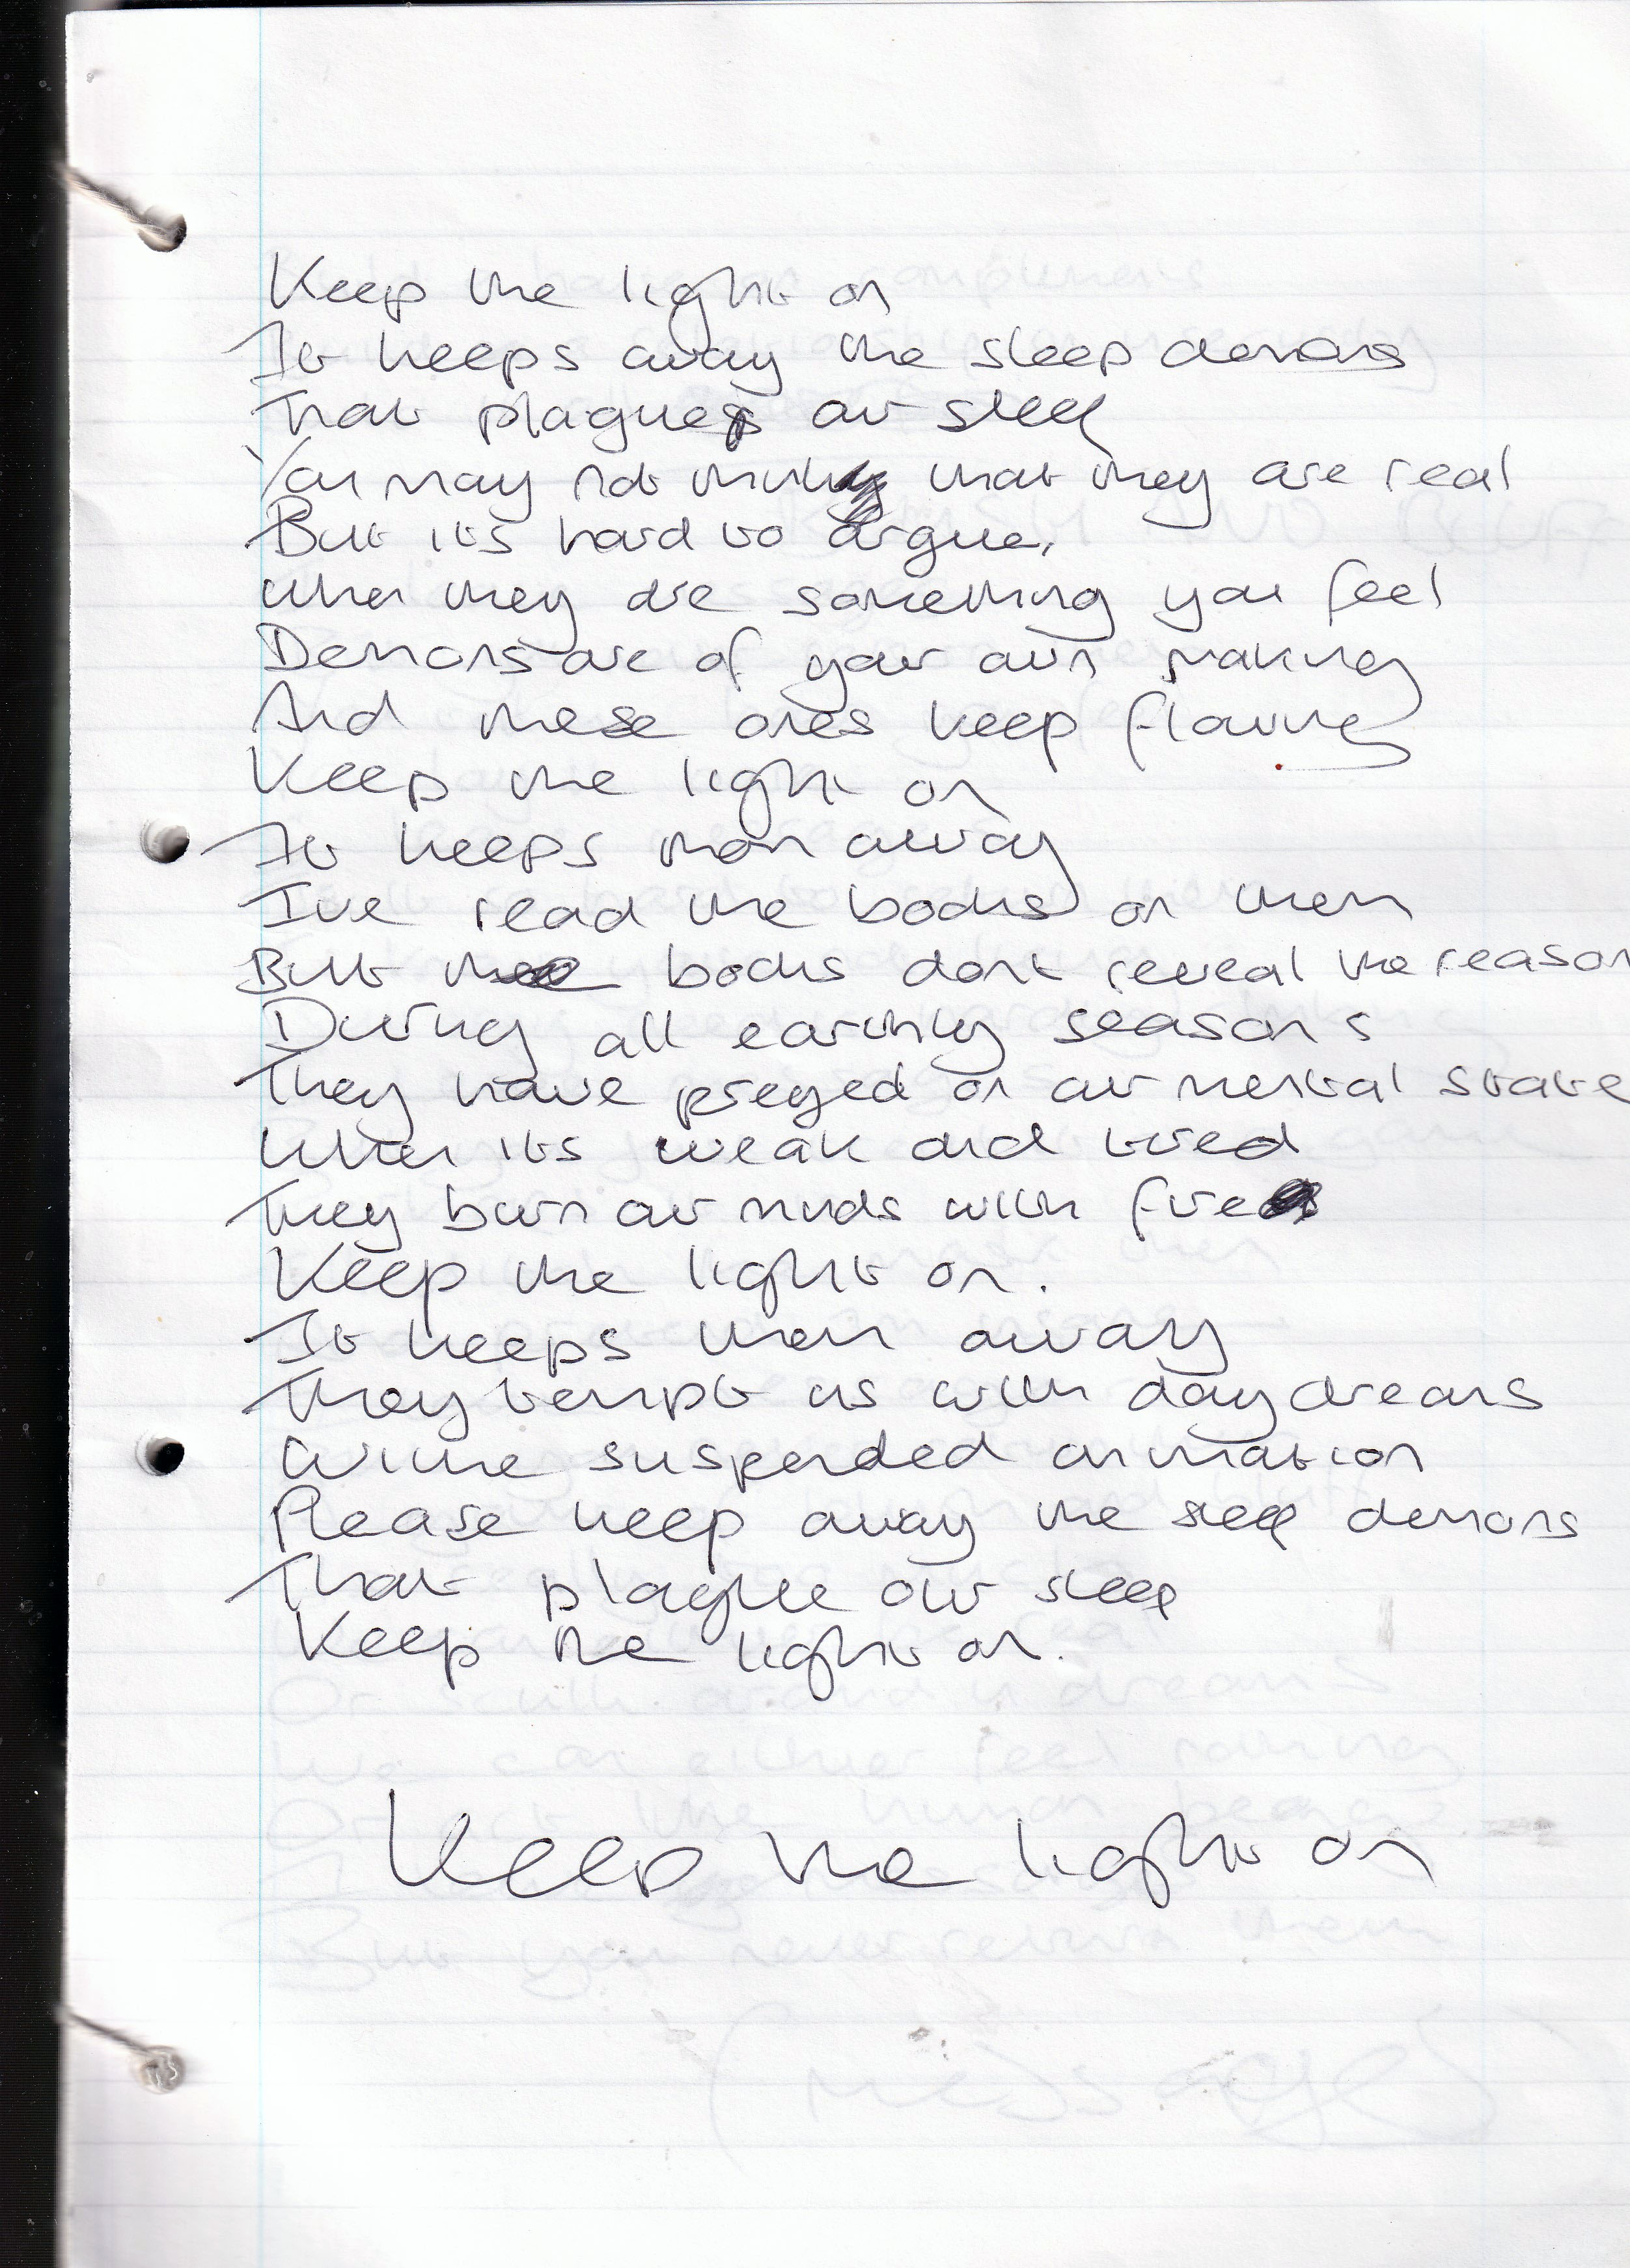 Keep the light on
It keeps away the sleep demons
That plagues our sleep
You may not think that they are real
But its hard to argue,
When they are something you feel
Demons are of your own making
And these ones keep flowing
Keep the light on
It keeps them away
Ive read the books on them
But the books dont reveal the reason
During all earthly seasons
They have preyed on our mental state
When its weak and tired
They burn our minds with fire
Keep the light on.
It keeps them away
They tempt us with day dreams
While suspended animation
Please keep away the sleep demons
That plague our sleep
Keep the light on.
Keep the light on